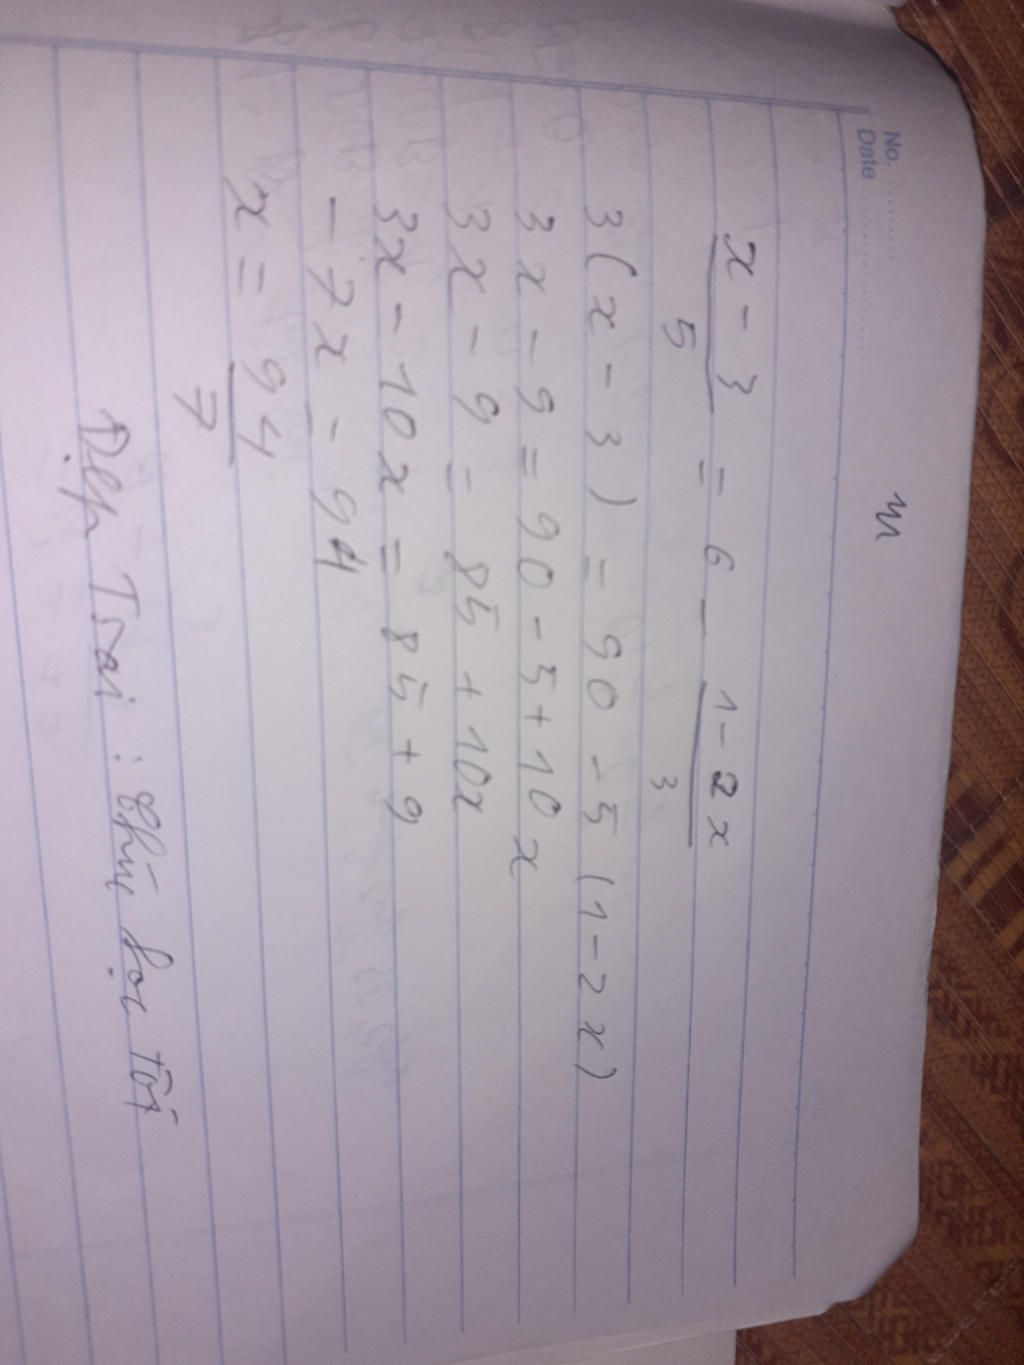 No.
Date
x - 3 / 5 = 6 - 1 - 2x / 3
3(x - 3) = 90 - 5(1 - 2x)
3x - 9 = 90 - 5 + 10x
3x - 9 = 85 + 10x
3x - 10x = 85 + 9
- 7x = 94
x = 94 / 7
Đẹp Trai : học Tốt